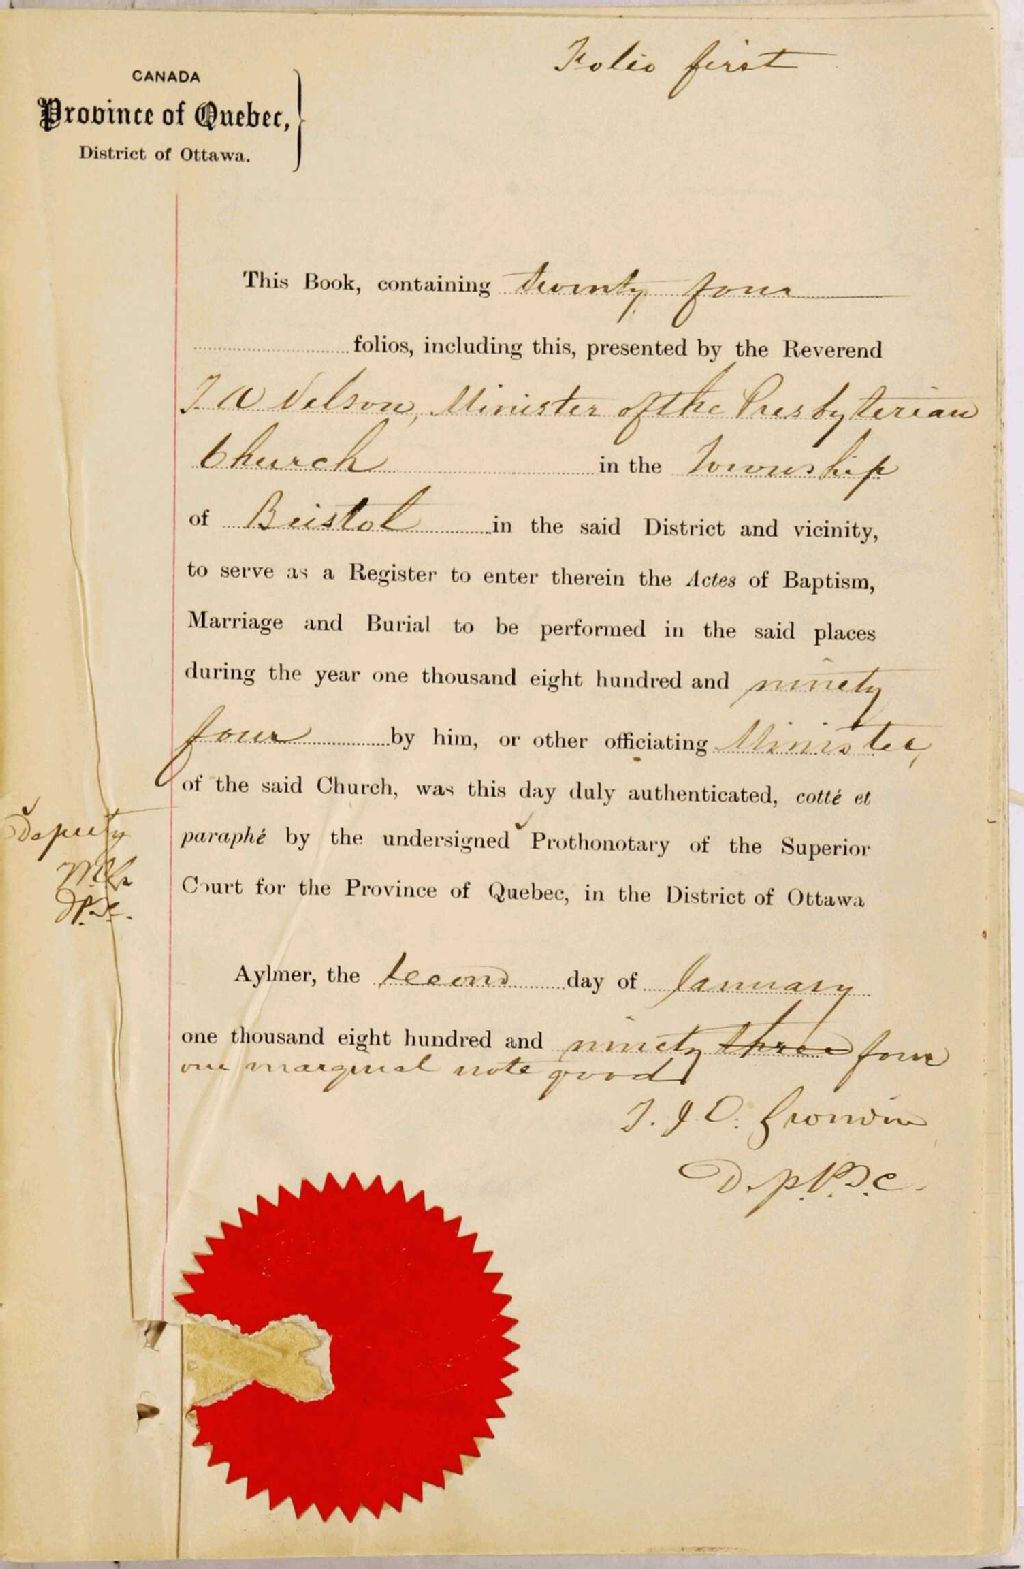 Folio first
CANADA
Province of Quebec,
District of Ottawa.
This Book, containing twenty four
folios, including this, presented by the Reverend
T. A Nelson, Minister of the Presbyterian
Church in the Township
of Bristol in the said District and vicinity,
to serve as a Register to enter therein the Actes of Baptism,
Marriage and Burial to be performed in the said places
during the year one thousand eight hundred and ninety
four by him, or other officiating Minister,
of the said Church, was this day duly authenticated, cotté et
Deputy
paraphé by the undersigned Prothonotary of the Superior
Court for the Province of Quebec, in the District of Ottawa
Aylmer, the second day of January
one thousand eight hundred and ninety three four
one marginal note good
Dep. P.S.C.